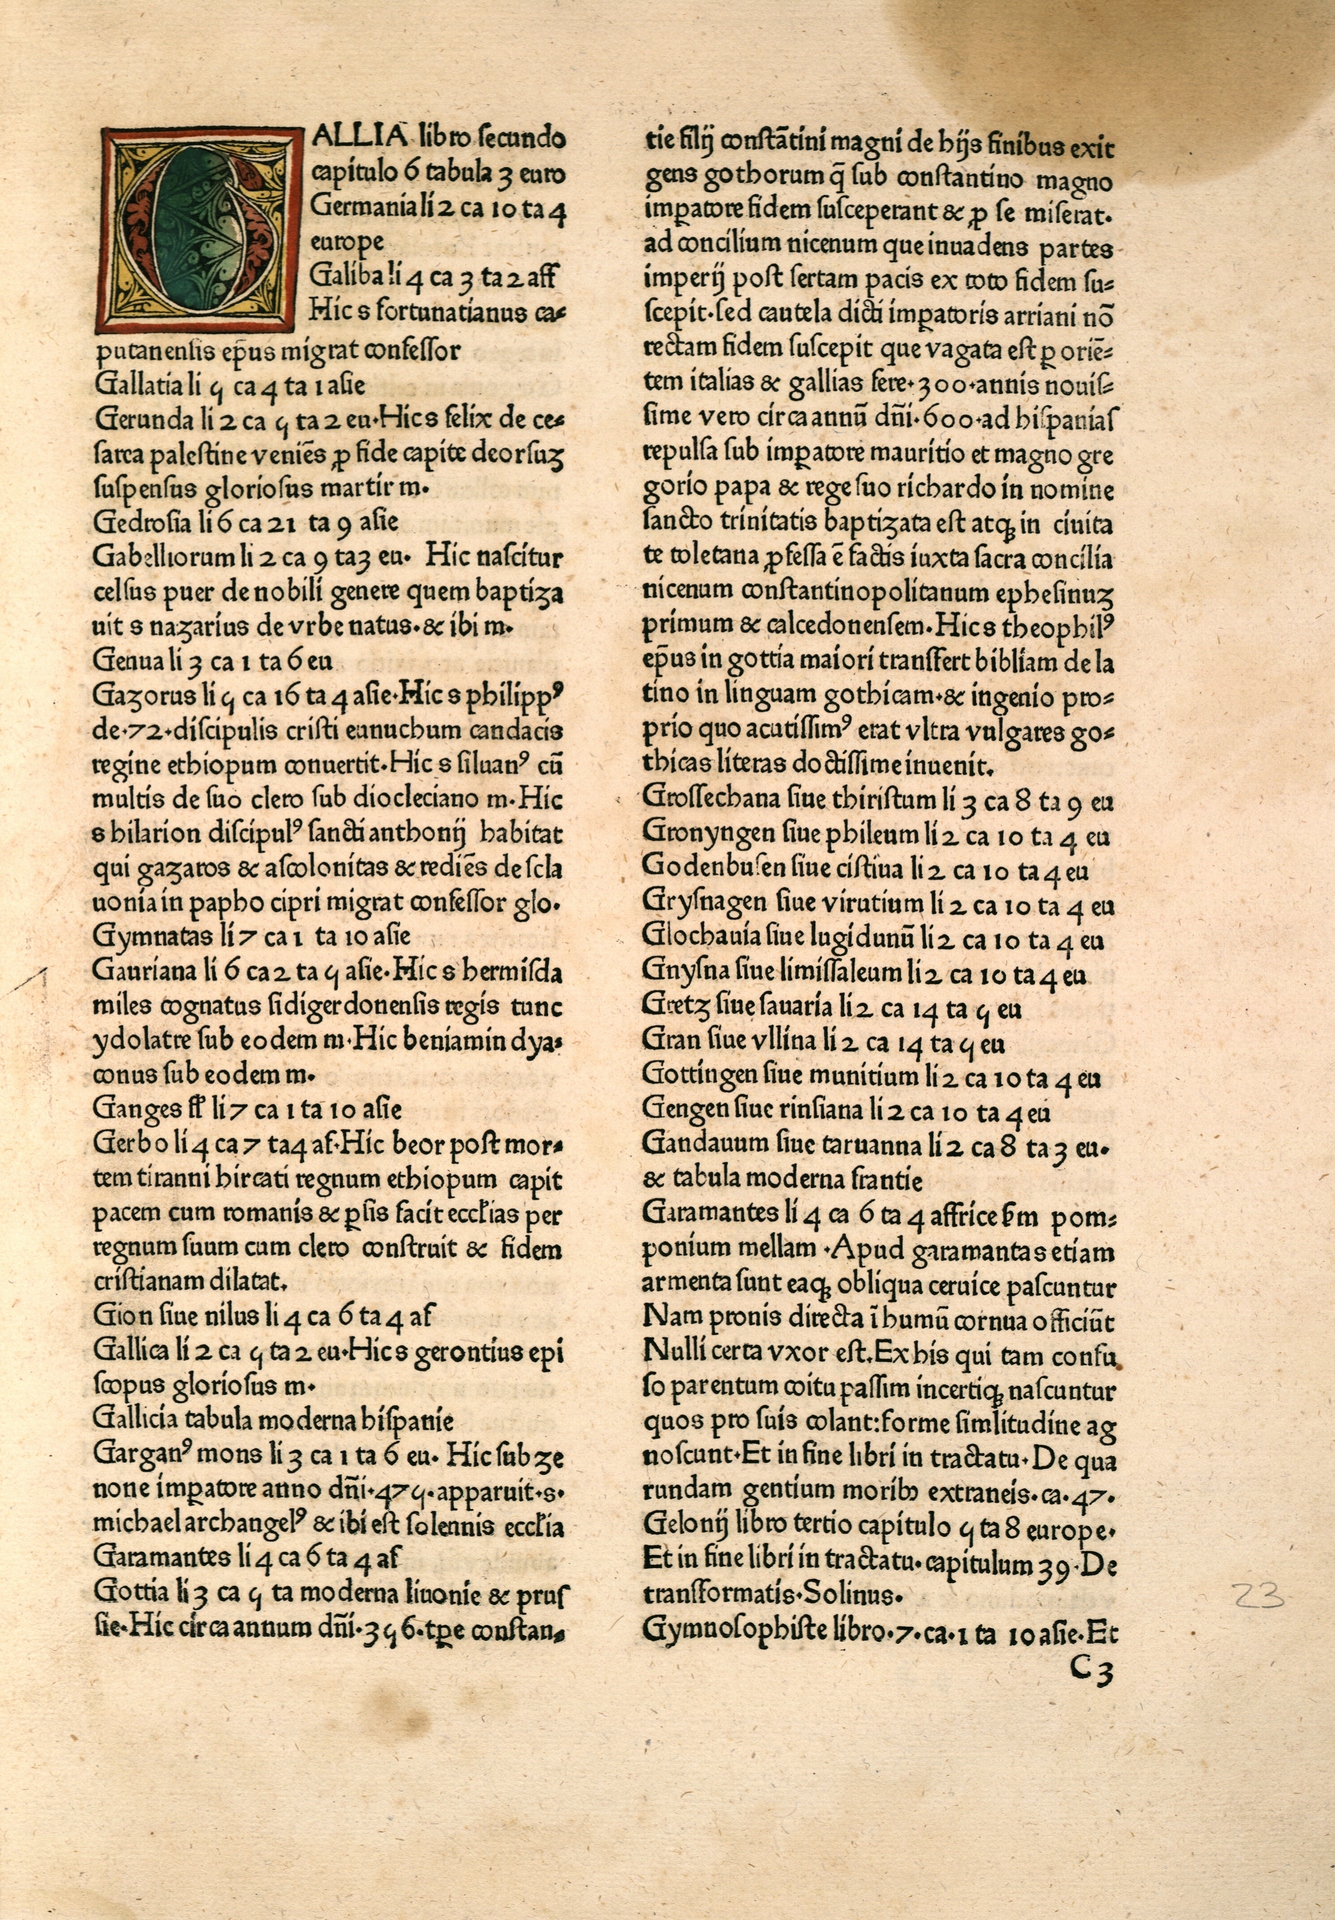 GALLIA libro secundo
capitulo 6 tabula 3 euro
Germania li 2 ca 10 ta 4
europe
Galiba li 4 ca 3 ta 2 aff
Hic s fortunatianus ca⸗
putanensis ep̄us migrat confessor
Gallatia li 5 ca 4 ta 1 asie
Gerunda li 2 ca 5 ta 2 eu·Hic s felix de ce⸗
sarea palestine veniēs ꝓ fide capite deorsuꝫ
suspensus gloriosus martir m·
Gedrosia li 6 ca 21 ta 9 asie
Gabelliorum li 2 ca 9 ta 3 eu· Hic nascitur
celsus puer de nobili genere quem baptiza
uit s nazarius de vrbe natus·& ibi m·
Genua li 3 ca 1 ta 6 eu
Gazorus li 5 ca 16 ta 4 asie·Hic s philippꝰ
de·72·discipulis cristi eunuchum candacis
regine ethiopum conuertit·Hic s siluanꝰ cū
multis de suo clero sub diocleciano m·Hic
s hilarion discipulꝰ sancti anthonij habitat
qui gazaros & ascolonitas & rediēs de scla
uonia in papho cipri migrat confessor glo·
Gymnatas li 7 ca 1 ta 10 asie
Gauriana li 6 ca 2 ta 5 asie·Hic s hermisda
miles cognatus sidigerdonensis regis tunc
ydolatre sub eodem m·Hic beniamin dya⸗
conus sub eodem m·
Ganges ff li 7 ca 1 ta 10 asie
Gerbo li 4 ca 7 ta 4 af·Hic beor post mor⸗
tem tiranni hircati regnum ethiopum capit
pacem cum romanis & ꝑsis facit eccl̄ias per
regnum suum cum clero construit & fidem
cristianam dilatat.
Gion siue nilus li 4 ca 6 ta 4 af
Gallica li 2 ca 5 ta 2 eu·Hic s gerontius epi
scopus gloriosus m·
Gallicia tabula moderna hispanie
Garganꝰ mons li 3 ca 1 ta 6 eu· Hic sub ze
none imꝑatore anno dn̄i·475·apparuit·s·
michael archangelꝰ & ibi est solennis eccl̄ia
Garamantes li 4 ca 6 ta 4 af
Gottia li 3 ca 5 ta moderna liuonie & prus
sie·Hic circa annum dn̄i·356·tꝑe constan⸗
tie filij constātini magni de hijs finibus exit
gens gothorum q̄ sub constantino magno
imꝑatore fidem susceperant & ꝓ se miserat·
ad concilium nicenum que inuadens partes
imperij post sertam pacis ex toto fidem su⸗
scepit·sed cautela dicti imꝑatoris arriani nō
rectam fidem suscepit que vagata est ꝑ oriē⸗
tem italias & gallias fere·300·annis nouis⸗
sime vero circa annū dn̄i·600·ad hispanias
repulsa sub imꝑatore mauritio et magno gre
gorio papa & rege suo richardo in nomine
sancto trinitatis baptizata est atqꝫ in ciuita
te toletana ꝓfessa ē factis iuxta sacra concilia
nicenum constantinopolitanum ephesinuꝫ
primum & calcedonensem·Hic s theophilꝰ
ep̄us in gottia maiori transfert bibliam de la
tino in linguam gothicam·& ingenio pro⸗
prio quo acutissimꝰ erat vltra vulgares go⸗
thicas literas doctissime inuenit.
Grossechana siue thiristum li 3 ca 8 ta 9 eu
Gronyngen siue phileum li 2 ca 10 ta 4 eu
Godenbusen siue cistiua li 2 ca 10 ta 4 eu
Grysnagen siue virutium li 2 ca 10 ta 4 eu
Glochauia siue lugidunū li 2 ca 10 ta 4 eu
Gnysna siue limissaleum li 2 ca 10 ta 4 eu
Gretz siue sauaria li 2 ca 14 ta 5 eu
Gran siue vllina li 2 ca 14 ta 5 eu
Gottingen siue munitium li 2 ca 10 ta 4 eu
Gengen siue rinsiana li 2 ca 10 ta 4 eu
Gandauum siue taruanna li 2 ca 8 ta 3 eu·
& tabula moderna frantie
Garamantes li 4 ca 6 ta 4 affrice ẜm pom⸗
ponium mellam ·Apud garamantas etiam
armenta sunt eaqꝫ obliqua ceruice pascuntur
Nam pronis directa ī humū cornua officiūt
Nulli certa vxor est.Ex his qui tam confu
so parentum coitu passim incertiqꝫ nascuntur
quos pro suis colant:forme simlitudine ag
noscunt·Et in fine libri in tractatu·De qua
rundam gentium moribꝫ extraneis·ca·47·
Gelonij libro tertio capitulo 5 ta 8 europe·
Et in fine libri in tractatu·capitulum 39·De
transformatis·Solinus·
Gymnosophiste libro·7·ca·1 ta 10 asie·Et
C 3
23